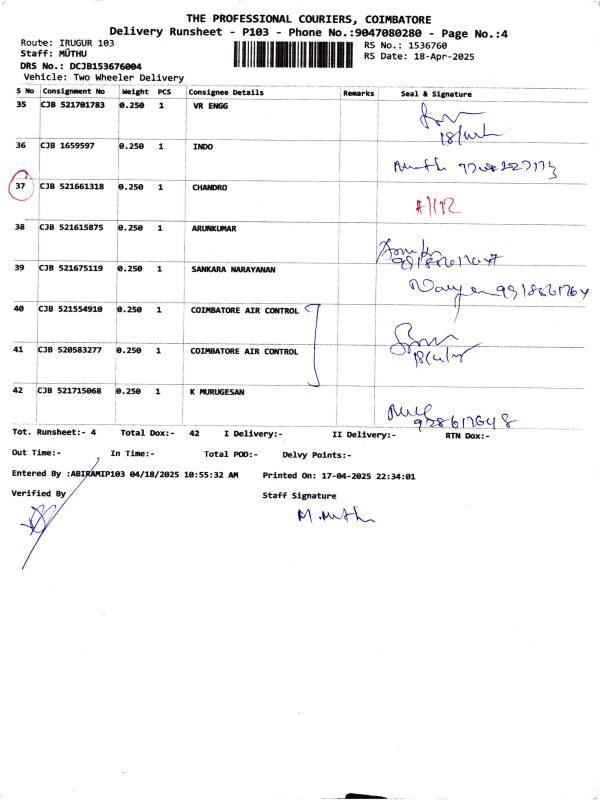 THE PROFESSIONAL COURIERS, COIMBATORE
Delivery Runsheet - P103 - Phone No.:9047080280 - Page No.:4
Route: IRUGUR 103
RS No.: 1536760
Staff: MUTHU
RS Date: 18-Apr-2025
DRS No.: DCJB153676004
Vehicle: Two Wheeler Delivery
S No Consignment No Weight PCS Consignee Details Remarks Seal & Signature
35 CJB 521701783 0.250 1 VR ENGG
36 CJB 1659597 0.250 1 INDO
37 CJB 521661318 0.250 1 CHANDRO
38 CJB 521615875 0.250 1 ARUNKUMAR
39 CJB 521675119 0.250 1 SANKARA NARAYANAN
40 CJB 521554910 0.250 1 COIMBATORE AIR CONTROL
41 CJB 520583277 0.250 1 COIMBATORE AIR CONTROL
42 CJB 521715068 0.250 1 K MURUGESAN
Tot. Runsheet:- 4 Total Dox:- 42 I Delivery:- II Delivery:- RTN Dox:-
Out Time:- In Time:- Total POD:- Delvy Points:-
Entered By :ABIRAMIP103 04/18/2025 10:55:32 AM Printed On: 17-04-2025 22:34:01
Verified By Staff Signature